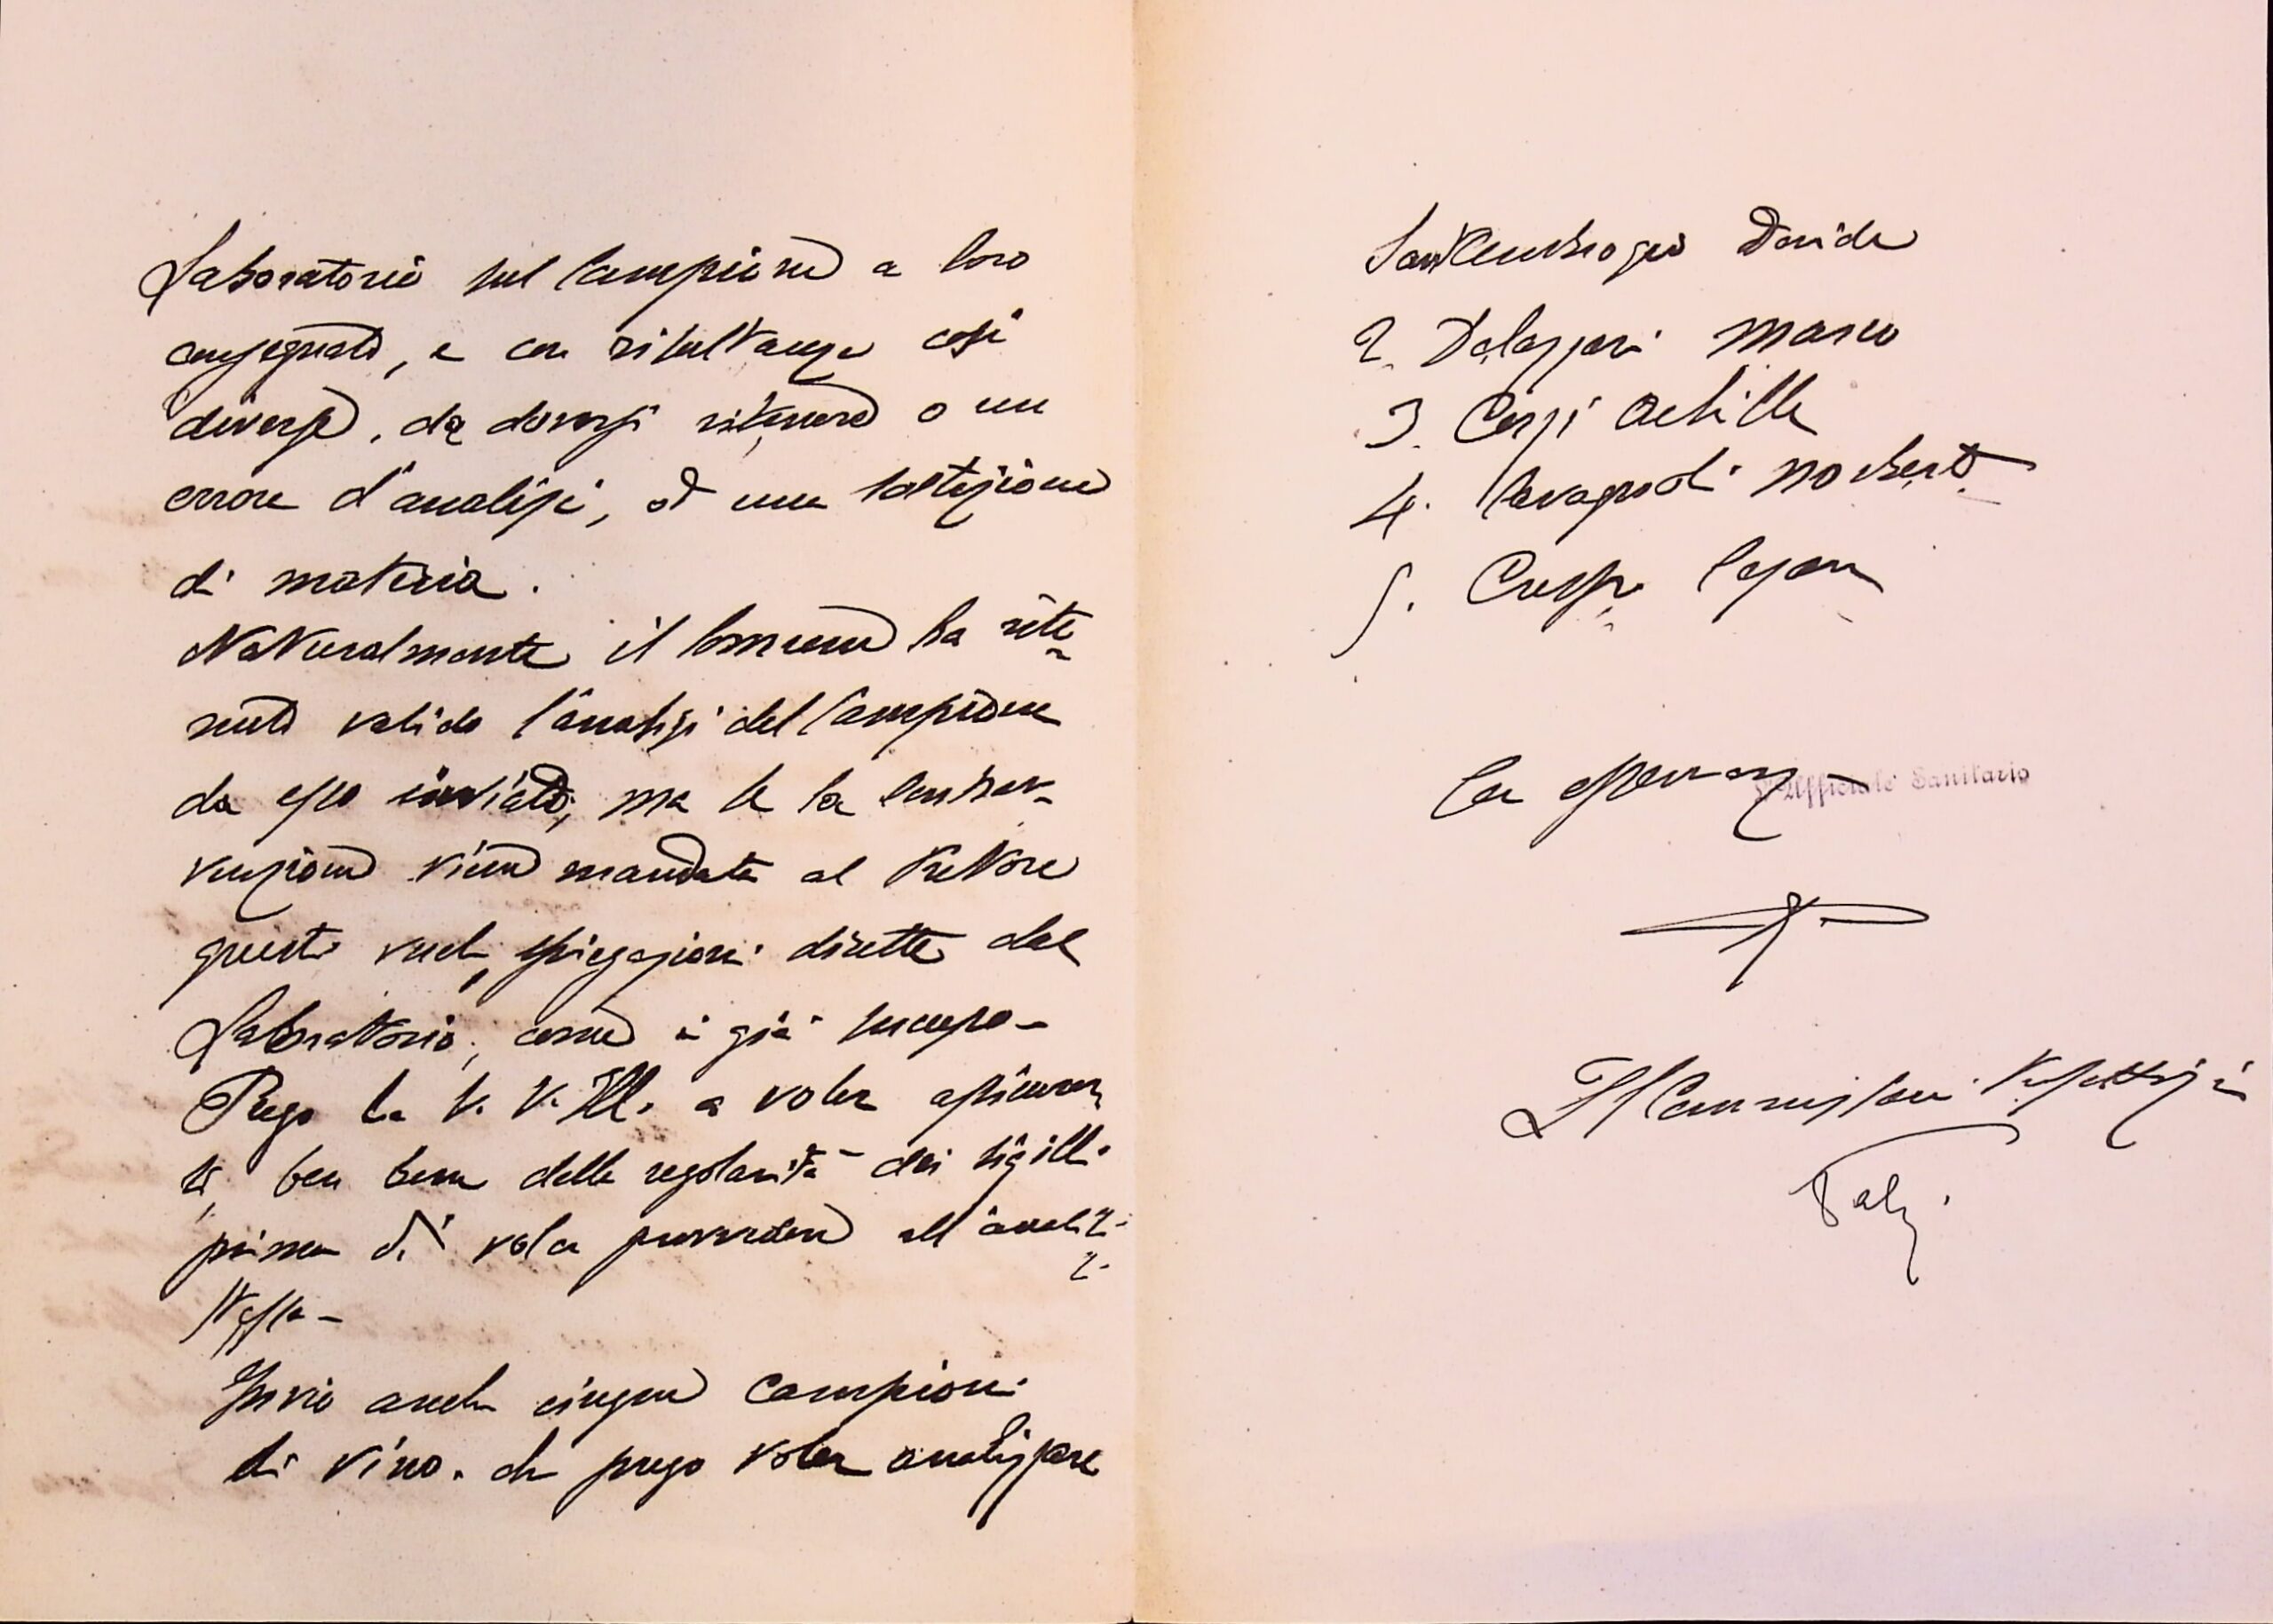 Laboratorio sul Campione a loro
consegnato, e con risultanze così
diverse, da doversi ritenere o un
errore d'analisi, od una sostituzione
di materia.
Naturalmente il Comune ha rite-
nuto valida l'analisi del Campione
da esso inviato, ma se la contrav-
venzione viene mandata al Pretore
questo vuole spiegazioni dirette dal
Laboratorio, come è già successo -
Prego la V. V. Ill. a voler assicurar
si ben bene della regolarità dei sigilli
prima di voler procedere all'analisi
stessa -
Invio anche cinque Campioni
di vino. che prego voler analizzare
Sant'Ambrogio Davide
2. Dalazzari Marco
3. Corsi Achille
4. Cavagnoli Norberto
5. Crespi Cesare
Con osservanza
L'Ufficiale Sanitario